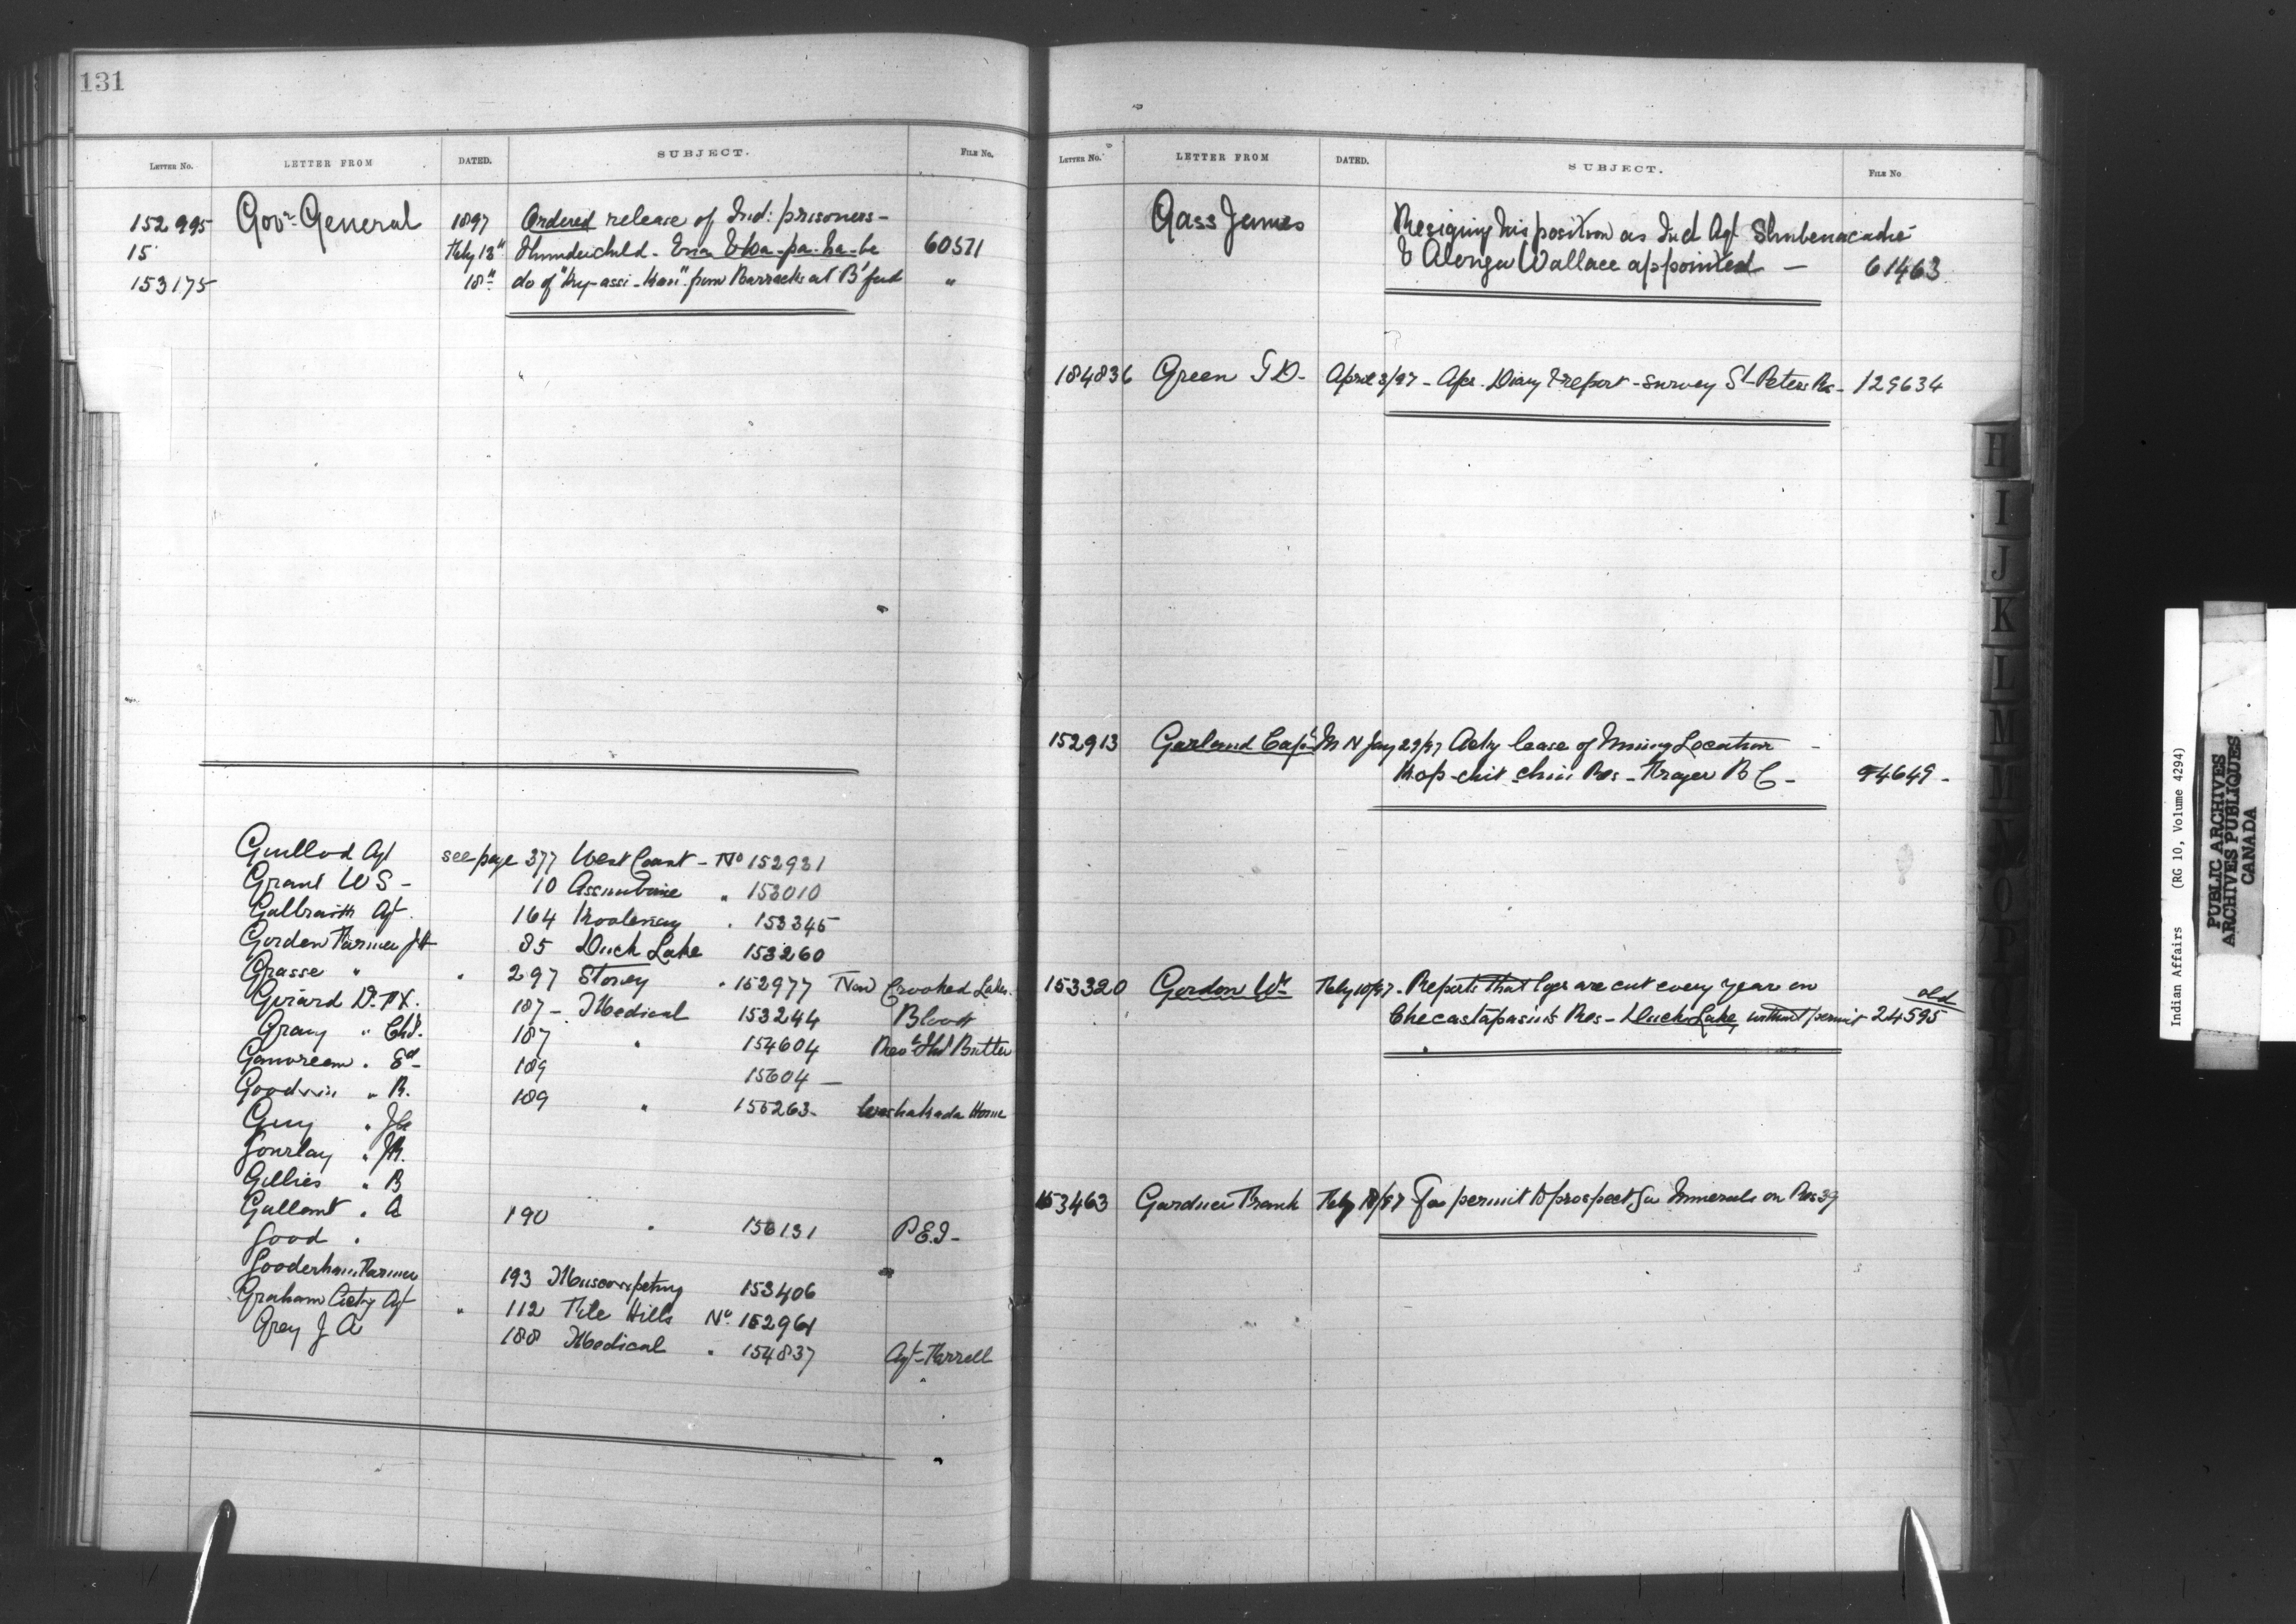 131
LETTER No. LETTER FROM DATED. SUBJECT. FILE No.
152995 Govr. General 1897 Ordered release of Ind: prisoners –
15 Feby 13" Thunderchild - 60571
153175 18" do of from Barracks at B'ford "
Guillod Agt see page 377 West Coast - No 152931
Grant W S - 10 Assiniboine " 153010
Galbraith Agt. 164 Kootenay . 153345
Gordon Farmer 85 Duck Lake 153260
Grasse " " 297 Stoney . 152977 Now Crooked Lakes.
Girard Dr. F X. 187 - Medical 153244 Blood
Gray " Chs. 187 " 154604 Revd Butler
Ganvreau . Ed - 189 15604 —
Goodwin " R. 189 " 155263 - Washakada Home
Guy .
Gourlay . J R.
Gillies . B
Gallant . A 190 . 156131 P.E.I -
Good .
Gooderham Farmer 193 Muscowpetung 153406
Graham Actg Agt " 112 File Hills No. 152961
Grey J A 188 Medical . 154837 Agt - Farrell
LETTER No. LETTER FROM DATED. SUBJECT. FILE No
Gass James Resigning his position as Ind Agt Shubenacadie
& Alonzo Wallace appointed — 61463
184836 Green T D - April 3/97 - Apr. Diary & report - survey St. Peters Res - 129634
152913 Garland Capt M N Jay 29/97 Actg lease of Mining Location –
Kop-chit-chin Res - Frazer B C - 94649 -
153320 Gordon Wm Feby 10/97 - Reports that logs are cut every year on
Checastapasin's Res - Duck Lake, without permit old 24595
153463 Gardner Frank Feby 18/97 For permit to prospect for Minerals on Res 39
H
I
J
K
L
M
O
P
Y
Indian Affairs (RG 10, Volume 4294)
PUBLIC ARCHIVES
ARCHIVES PUBLIQUES
CANADA